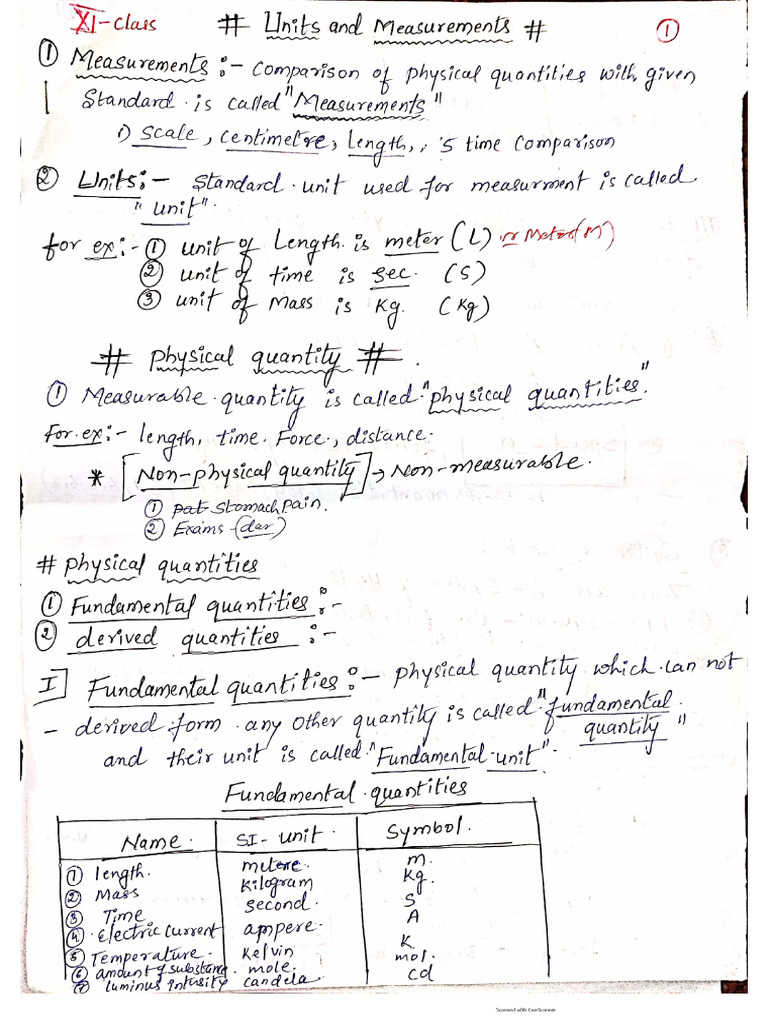 XI-Class # Units and Measurements # 1
① Measurements:- Comparison of physical quantities with given
Standard is called "Measurements"
i) Scale, centimetre, length, , 5 time Comparison
② Units:- Standard unit used for measurment is called
"unit".
for ex:- ① unit of Length is meter (L) or Meter(M)
② unit of time is sec. (S)
③ unit of Mass is Kg. (Kg)
# Physical quantity #.
① Measurable quantity is called "physical quantities"
For.ex:- length, time. Force., distance.
* [Non-physical quantity] → Non-measurable.
① Pat Stomach pain.
② Exams (dar)
# Physical quantities
① Fundamental quantities:-
② derived quantities:-
I] Fundamental quantities:- physical quantity which can not
- derived form any other quantity is called "fundamental
quantity"
and their unit is called "Fundamental unit".
Fundamental quantities
Name. SI-unit. Symbol.
① length. metere. m.
② Mass Kilogram Kg.
③ Time second. S
④ electric Current ampere. A
⑤ Temperature. Kelvin K
⑥ amount of substanc. mole. mol.
⑦ luminus intusity candela. cd
Scanned with CamScanner